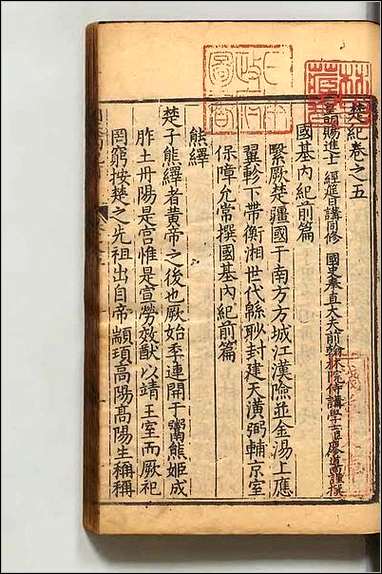 楚紀卷之五
皇明賜進士 經筵日講同修 國史奉直大夫前翰林院侍講學士臣廖道南謹撰
國基內紀前篇
繄厥楚疆國于南方方城江漢險並金湯上應
翼軫下帶衡湘世代緜耿封建天潢弼輔京室
保障允常撰國基內紀前篇
熊繹
楚子熊繹者黃帝之後也厥始季連開于鬻熊姬成
胙土丹陽是宮惟是宣勞效猷以靖王室而厥祀
罔窮按楚之先祖出自帝顓頊高陽高陽生稱稱